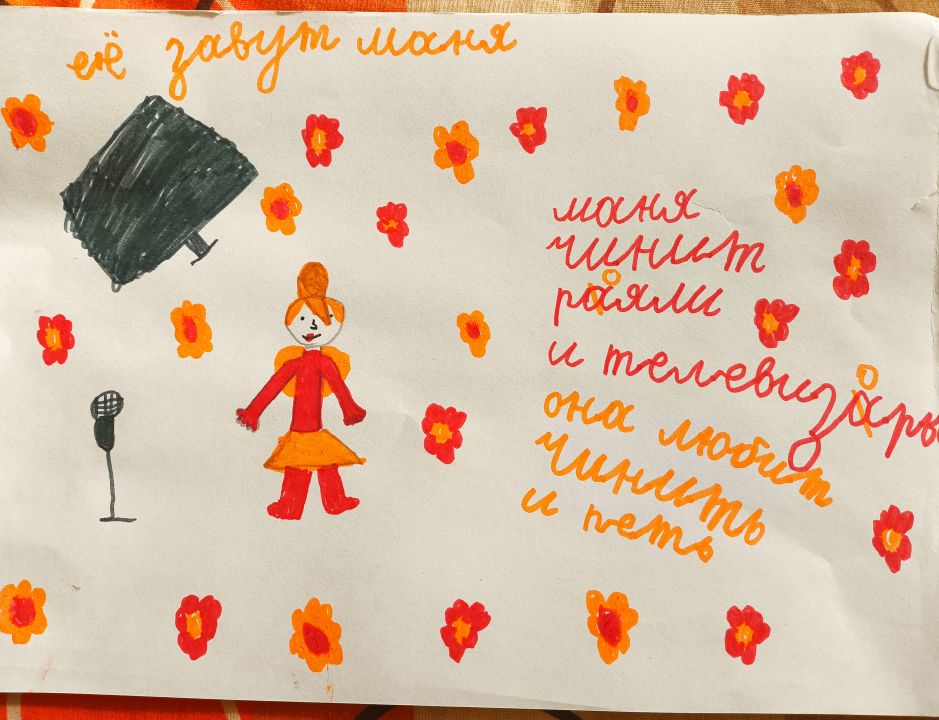 её завут маня
маня
чинит
рояли
и телевизоры
она любит
чинить
и петь